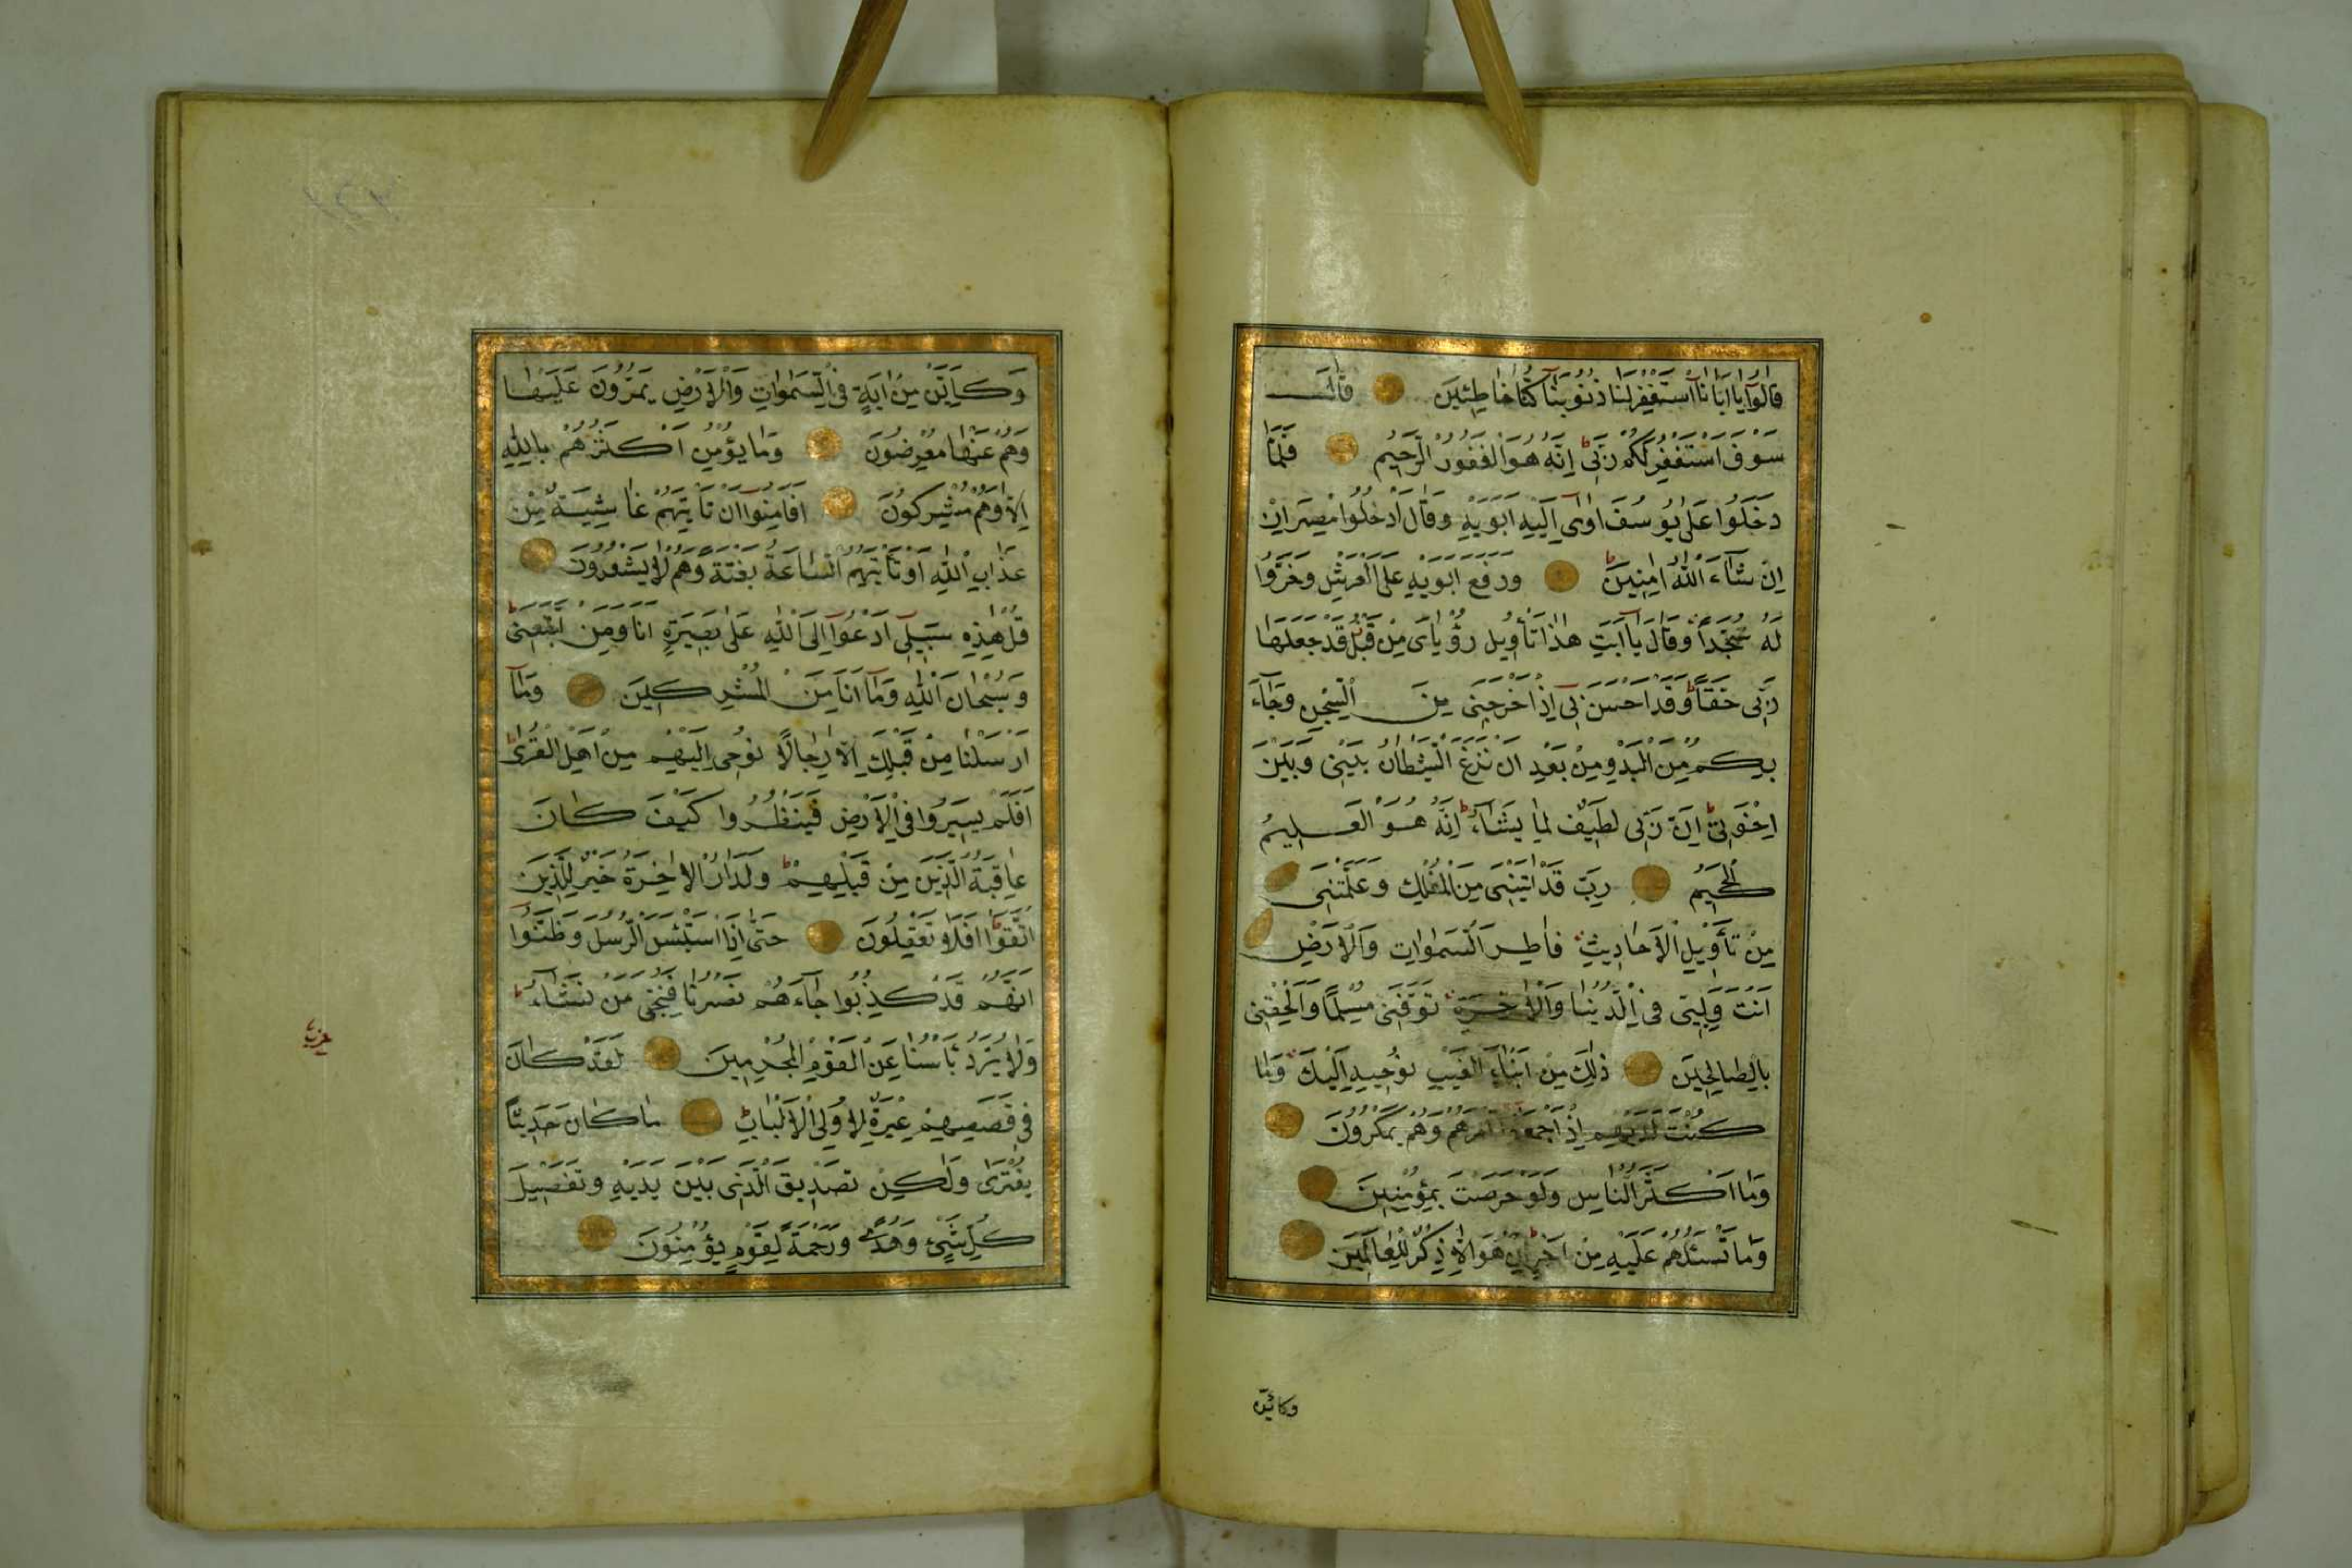 قَالُوا يَا اَبَانَا اسْتَغْفِرْ لَنَا ذُنُوبَنَا اِنَّا كُنَّا خَاطِئِينَ قَالَ
سَوْفَ اَسْتَغْفِرُ لَكُمْ رَبِّى اِنَّهُ هُوَ الْغَفُورُ الرَّحِيمُ فَلَمَّا
دَخَلُوا عَلٰى يُوسُفَ اٰوٰى اِلَيْهِ اَبَوَيْهِ وَقَالَ ادْخُلُوا مِصْرَ اِنْ
اِنْ شَاءَ اللّٰهُ اٰمِنِينَ وَرَفَعَ اَبَوَيْهِ عَلَى الْعَرْشِ وَخَرُّوا
لَهُ سُجَّداً وَقَالَ يَا اَبَتِ هٰذَا تَأْوِيلُ رُؤْيَاىَ مِنْ قَبْلُ قَدْ جَعَلَهَا
رَبِّى حَقّاً وَقَدْ اَحْسَنَ بِى اِذْ اَخْرَجَنِى مِنَ السِّجْنِ وَجَاءَ
بِكُمْ مِنَ الْبَدْوِ مِنْ بَعْدِ اَنْ نَزَغَ الشَّيْطَانُ بَيْنِى وَبَيْنَ
اِخْوَتِى اِنَّ رَبِّى لَطِيفٌ لِمَا يَشَاءُ اِنَّهُ هُوَ الْعَلِيمُ
الْحَكِيمُ رَبِّ قَدْ اٰتَيْتَنِى مِنَ الْمُلْكِ وَعَلَّمْتَنِى
مِنْ تَأْوِيلِ الْاَحَادِيثِ فَاطِرَ السَّمٰوَاتِ وَالْاَرْضِ
اَنْتَ وَلِيِّى فِى الدُّنْيَا وَالْاٰخِرَةِ تَوَفَّنِى مُسْلِمًا وَاَلْحِقْنِى
بِالصَّالِحِينَ ذٰلِكَ مِنْ اَنْبَاءِ الْغَيْبِ نُوحِيهِ اِلَيْكَ وَمَا
كُنْتَ لَدَيْهِمْ اِذْ اَجْمَعُوا اَمْرَهُمْ وَهُمْ يَمْكُرُونَ
وَمَا اَكْثَرُ النَّاسِ وَلَوْ حَرَصْتَ بِمُؤْمِنِينَ
وَمَا تَسْئَلُهُمْ عَلَيْهِ مِنْ اَجْرٍ اِنْ هُوَ اِلَّا ذِكْرٌ لِلْعَالَمِينَ
وكاين
وَكَاَيِّنْ مِنْ اٰيَةٍ فِى السَّمٰوَاتِ وَالْاَرْضِ يَمُرُّونَ عَلَيْهَا
وَهُمْ عَنْهَا مُعْرِضُونَ وَمَا يُؤْمِنُ اَكْثَرُهُمْ بِاللّٰهِ
اِلَّا وَهُمْ مُشْرِكُونَ اَفَاَمِنُوا اَنْ تَأْتِيَهُمْ غَاشِيَةٌ مِنْ
عَذَابِ اللّٰهِ اَوْ تَأْتِيَهُمُ السَّاعَةُ بَغْتَةً وَهُمْ لَا يَشْعُرُونَ
قُلْ هٰذِهِ سَبِيلِى اَدْعُوا اِلَى اللّٰهِ عَلٰى بَصِيرَةٍ اَنَا وَمَنِ اتَّبَعَنِى
وَسُبْحَانَ اللّٰهِ وَمَا اَنَا مِنَ الْمُشْرِكِينَ وَمَا
اَرْسَلْنَا مِنْ قَبْلِكَ اِلَّا رِجَالًا نُوحِى اِلَيْهِمْ مِنْ اَهْلِ الْقُرٰى
اَفَلَمْ يَسِيرُوا فِى الْاَرْضِ فَيَنْظُرُوا كَيْفَ كَانَ
عَاقِبَةُ الَّذِينَ مِنْ قَبْلِهِمْ وَلَدَارُ الْاٰخِرَةِ خَيْرٌ لِلَّذِينَ
اتَّقَوْا اَفَلَا تَعْقِلُونَ حَتّٰى اِذَا اسْتَيْئَسَ الرُّسُلُ وَظَنُّوا
اَنَّهُمْ قَدْ كُذِبُوا جَاءَهُمْ نَصْرُنَا فَنُجِّىَ مَنْ نَشَاءُ
وَلَا يُرَدُّ بَأْسُنَا عَنِ الْقَوْمِ الْمُجْرِمِينَ لَقَدْ كَانَ
فِى قَصَصِهِمْ عِبْرَةٌ لِاُولِى الْاَلْبَابِ مَا كَانَ حَدِيثًا
يُفْتَرٰى وَلٰكِنْ تَصْدِيقَ الَّذِى بَيْنَ يَدَيْهِ وَتَفْصِيلَ
كُلِّ شَىْءٍ وَهُدًى وَرَحْمَةً لِقَوْمٍ يُؤْمِنُونَ